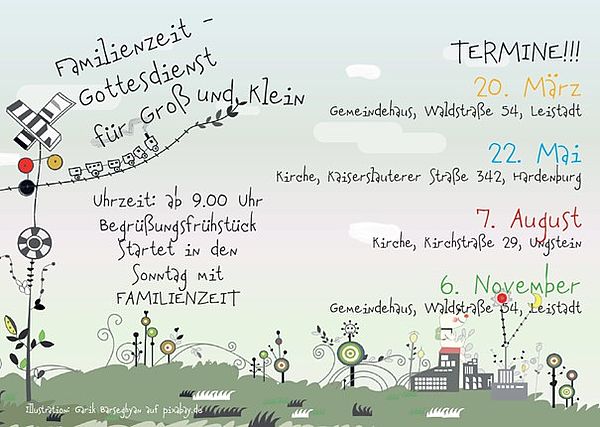 Familienzeit -
Gottesdienst
für Groß und Klein
Uhrzeit: ab 9.00 Uhr
Begrüßungsfrühstück
Startet in den
Sonntag mit
FAMILIENZEIT
TERMINE!!!
20. März
Gemeindehaus, Waldstraße 54, Leistadt
22. Mai
Kirche, Kaiserslauterer Straße 342, Hardenburg
7. August
Kirche, Kirchstraße 29, Ungstein
6. November
Gemeindehaus, Waldstraße 54, Leistadt
Illustration: Garik Barseghyan auf pixabay.de